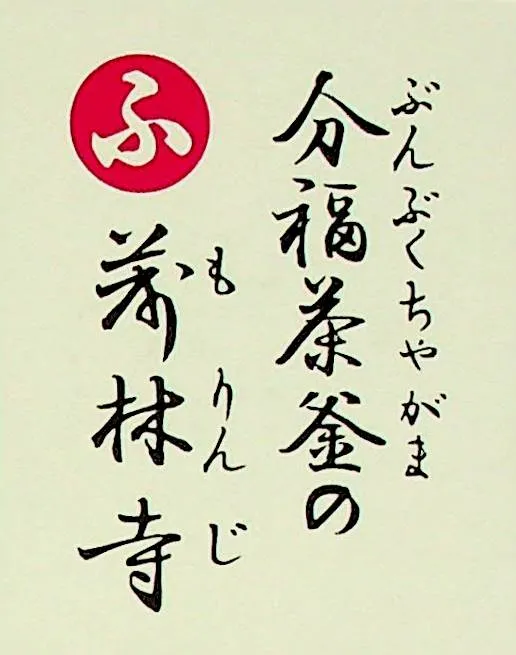 ぶんぶくちやがま
分福茶釜の
もりんじ
茂林寺
ふ